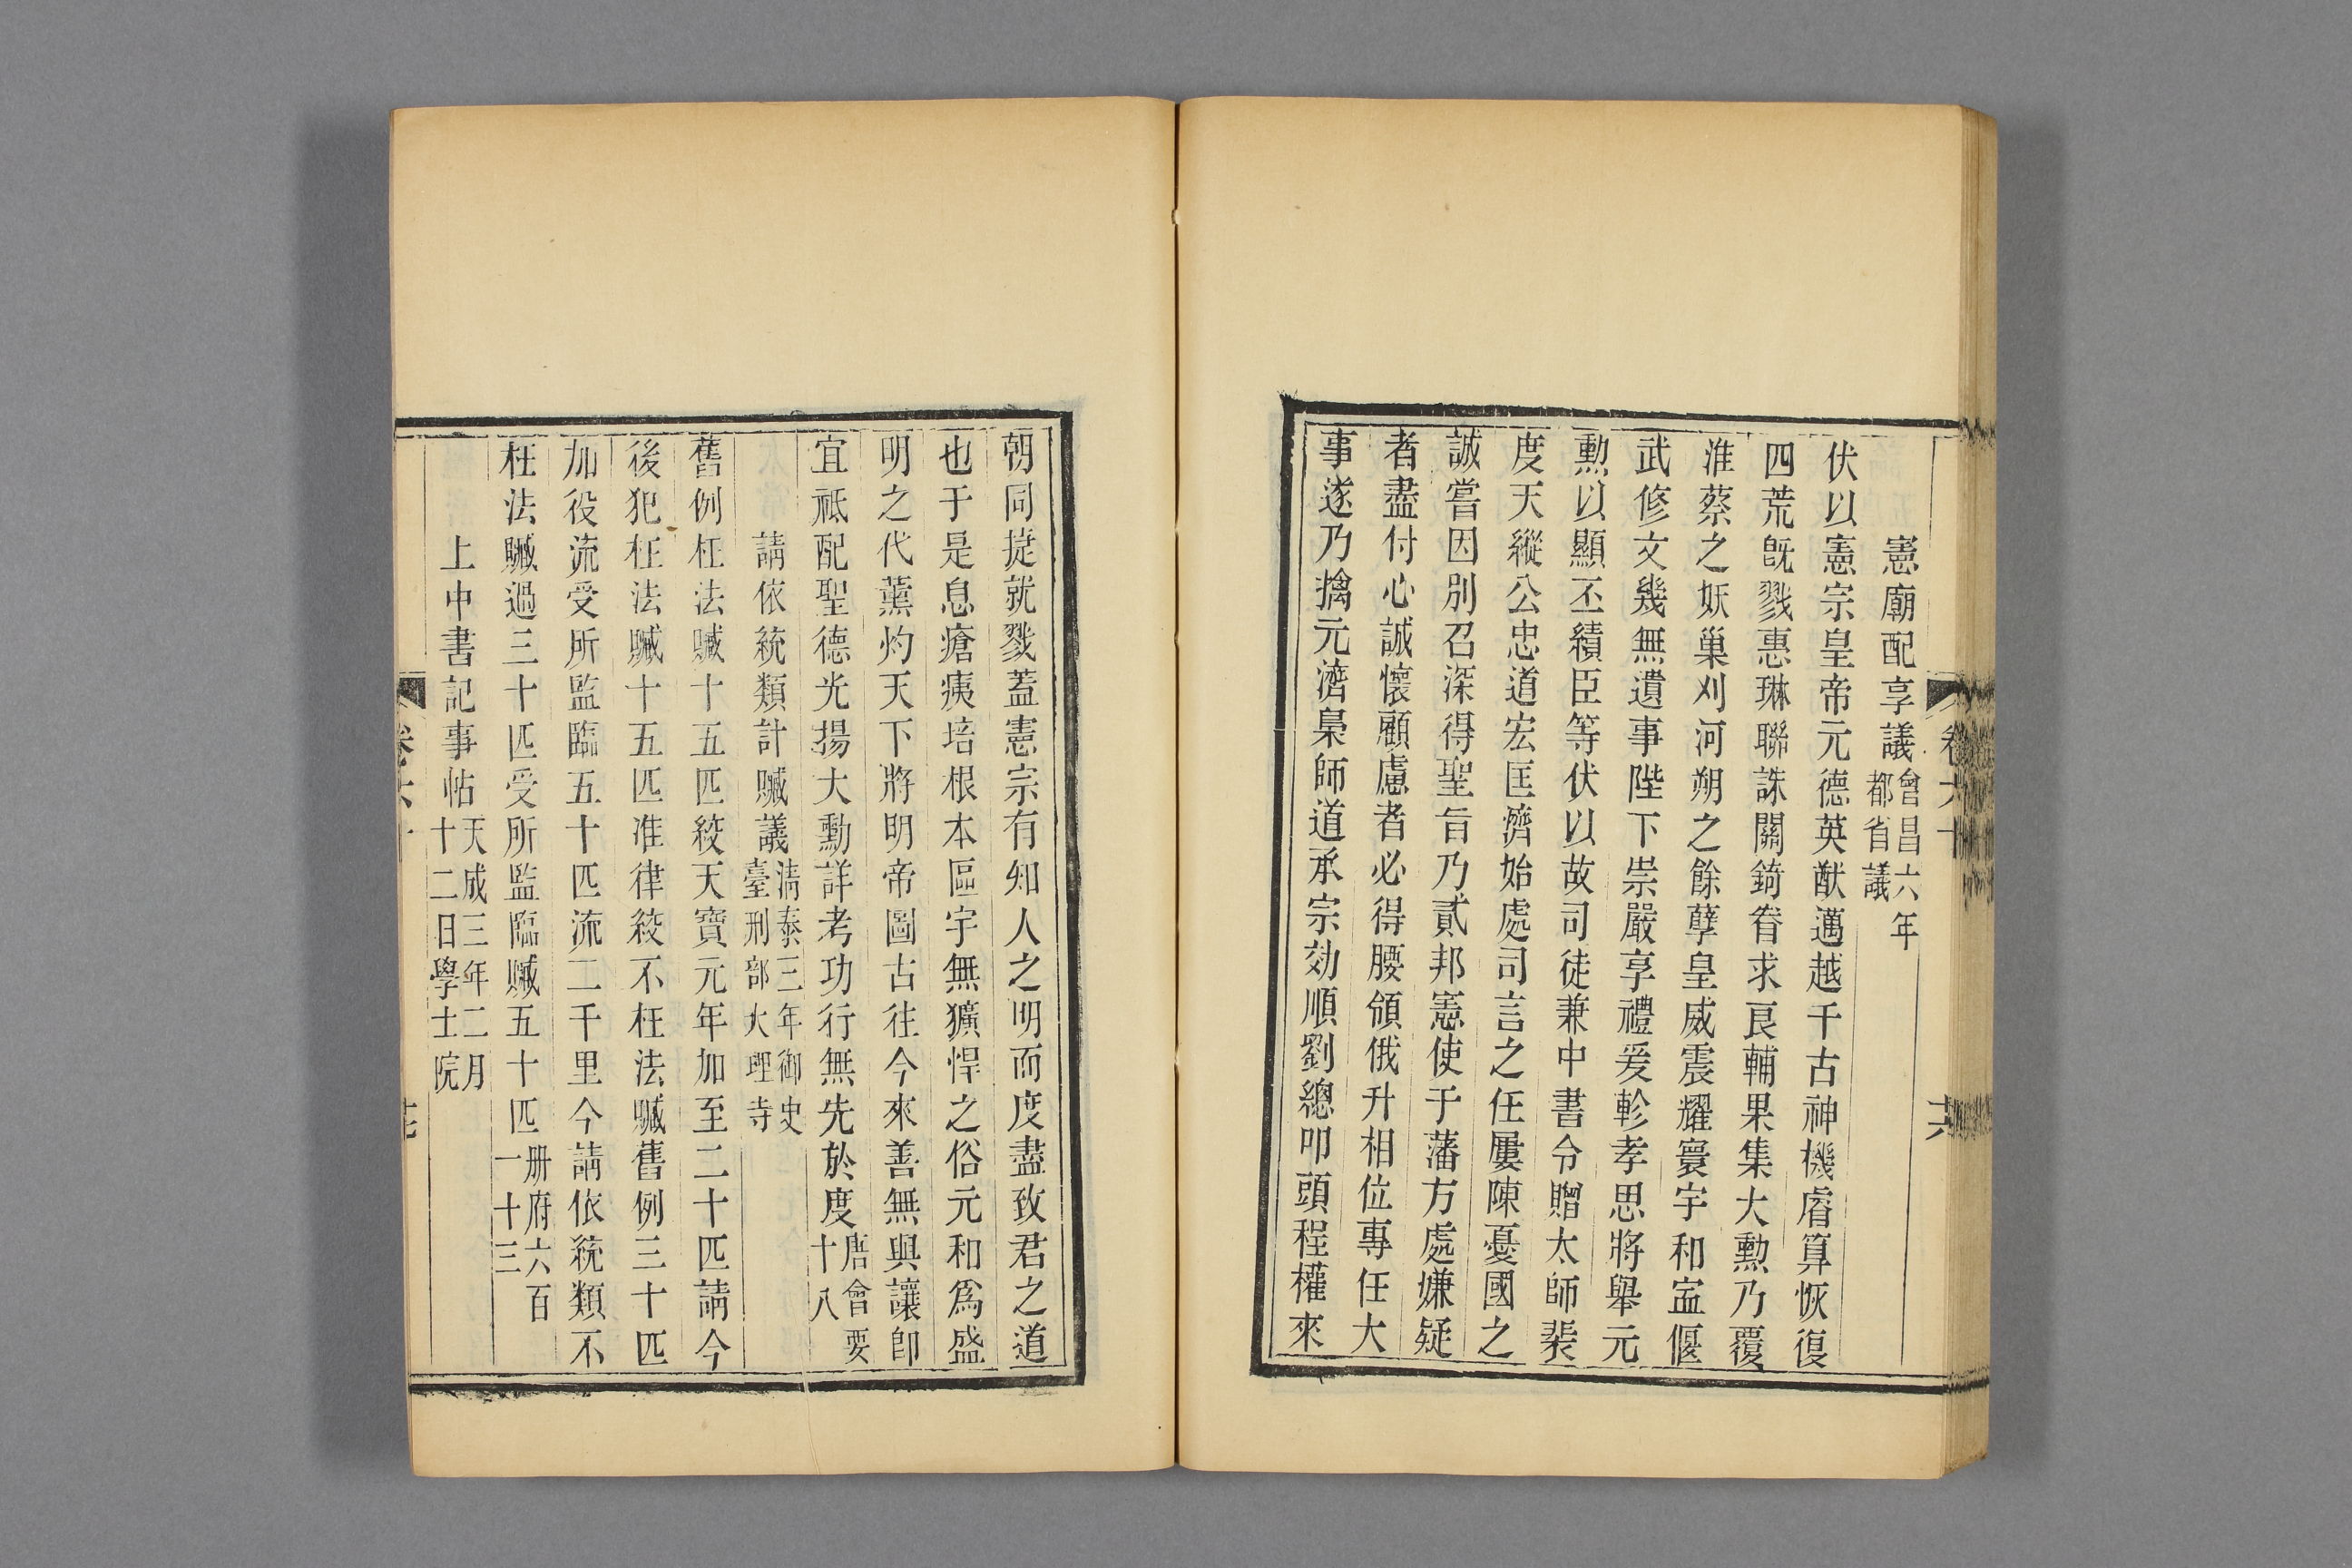 憲廟配享議會昌六年都省議
伏以憲宗皇帝元德英猷邁越千古神機睿算恢復
四荒旣戮惠琳聯誅闢錡眷求良輔果集大勳乃覆
淮蔡之妖巢刈河朔之餘孽皇威震耀寰宇和寍偃
武修文幾無遺事陛下崇嚴享禮爰軫孝思將舉元
勳以顯丕績臣等伏以故司徒兼中書令贈太師裴
度天縱公忠道宏匡濟始處司言之任屢陳憂國之
誠嘗因別召深得聖旨乃貳邦憲使于藩方處嫌疑
者盡付心誠懷顧慮者必得腰領俄升相位專任大
事遂乃擒元濟梟師道承宗効順劉總叩頭程權來
朝同捷就戮蓋憲宗有知人之明而度盡致君之道
也于是息瘡痍培根本區宇無獷悍之俗元和爲盛
明之代薰灼天下將明帝圖古往今來善無與讓卽
宜祗配聖德光揚大勳詳考功行無先於度唐會要十八
請依統類計贓議淸泰三年御史臺刑部大理寺
舊例枉法贓十五匹絞天寶元年加至二十匹請今
後犯枉法贓十五匹准律絞不枉法贓舊例三十匹
加役流受所監臨五十匹流二千里今請依統類不
枉法贓過三十匹受所監臨贓五十匹册府六百一十三
上中書記事帖天成三年二月十二日學士院